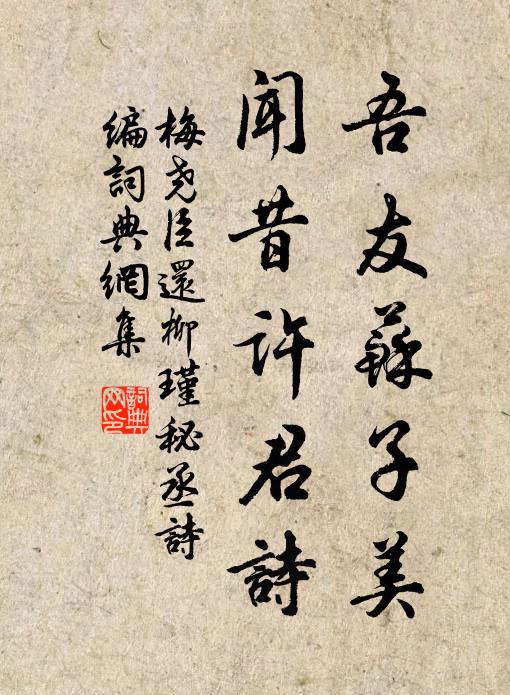 吾友蘇子美
聞昔許君詩
梅堯臣還柳瑾秘丞詩
編詞典網集
詞典网印